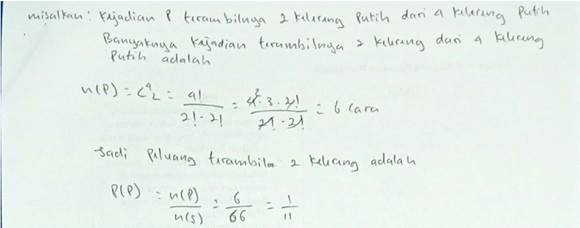 misalkan: kejadian P terambilnya 2 kelereng putih dari 4 kelereng putih
Banyaknya kejadian terambilnya 2 kelereng dari 4 kelereng
putih adalah
n(P) = C⁴₂ = 4! / 2!·2! = 4²·3·2! / 2!·2! = 6 cara
Jadi peluang terambil 2 kelereng adalah
P(P) = n(P) / n(S) = 6/66 = 1/11